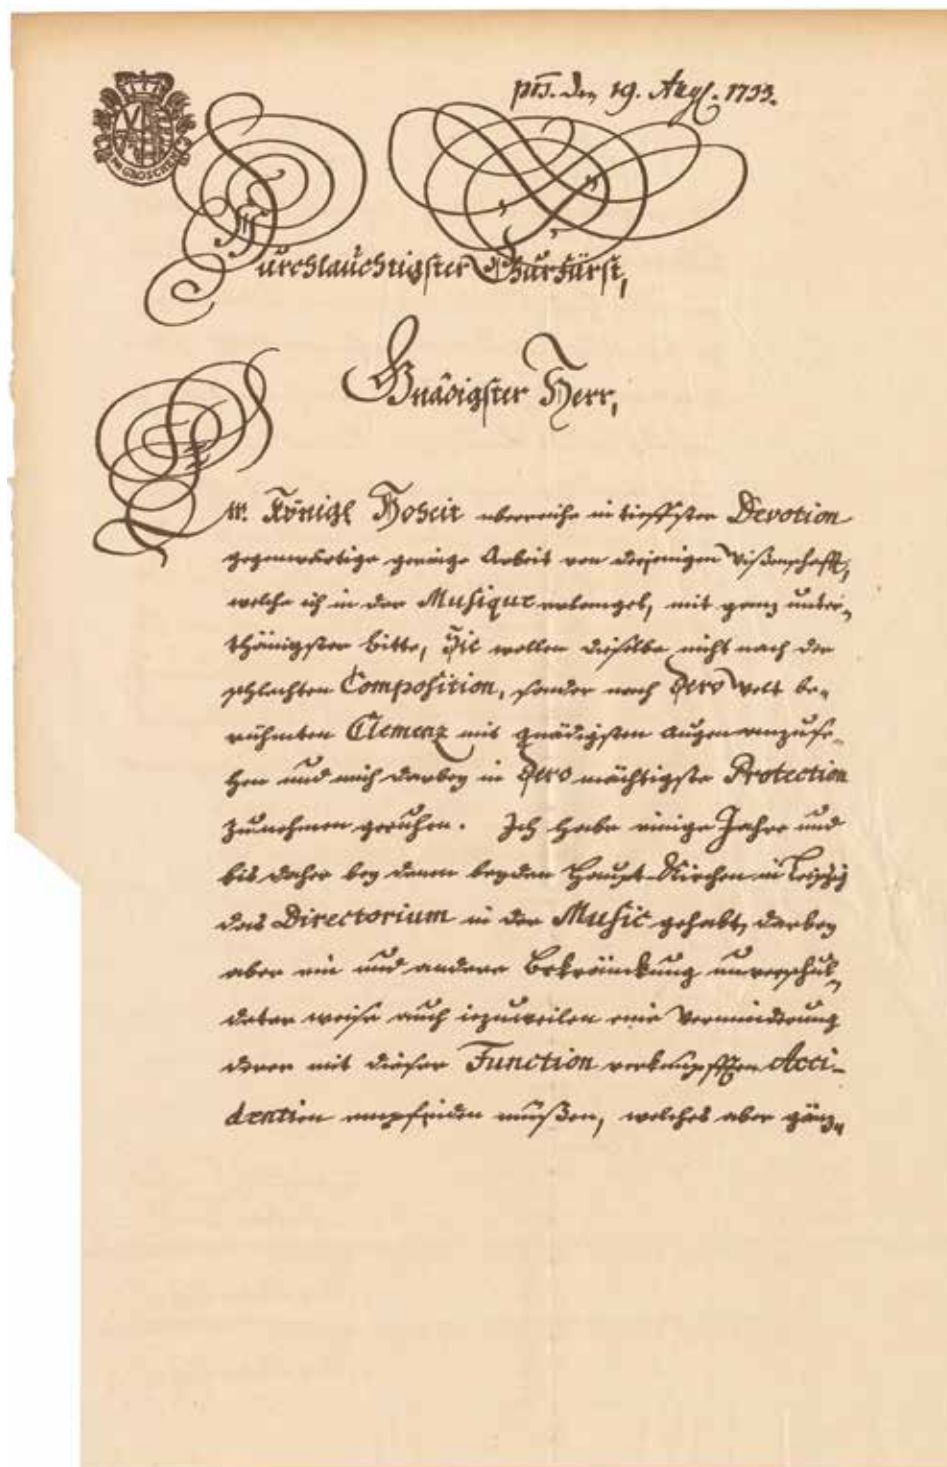 EIN GROSCHEN
pts. den 19. Aug. 1733.
Durchlauchtigster Churfürst,
Gnädigster Herr,
Ew. Königl Hoheit überreiche in tieffster Devotion
gegenwärtige geringe Arbeit von derjenigen Wißenschafft,
welche ich in der Musique erlanget, mit ganz unter-
thänigster bitte, Sie wollen dieselbe nicht nach der
schlechten Composition, sonder nach Dero Welt be-
rühmten Clemenz mit gnädigsten Augen anzuse-
hen und mich darbey in Dero mächtigste Protection
zunehmen geruhen. Ich habe einige Jahre und
bis daher bey denen beyden Haupt-Kirchen in Leipzig
das Directorium in der Music gehabt, darbey
aber ein und andere Bekränckung unverschul-
deter weise auch iezuweilen eine Verminderung
derer mit dieser Function verknüpfften Acci-
dentien empfinden müßen, welches aber gänz-